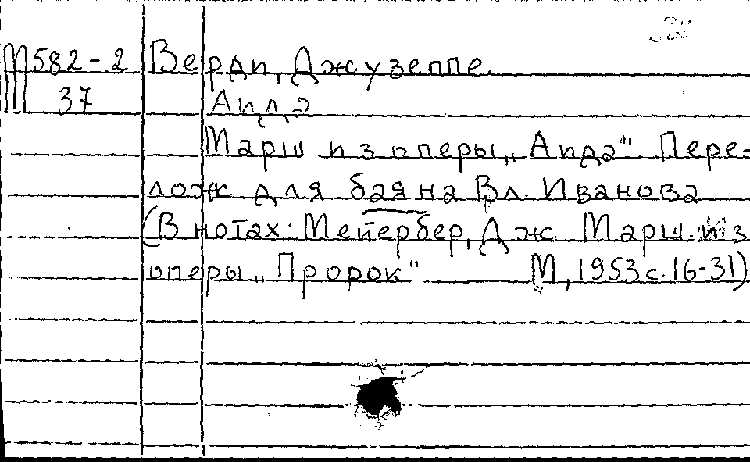 М582-2 Верди, Джузеппе.
37 Аида
Марш из оперы „Аида" Пере-
лож для баяна Вл. Иванова
(В нотах: Мейербер, Дж Марш из
оперы „Пророк" М, 1953 с. 16-31)